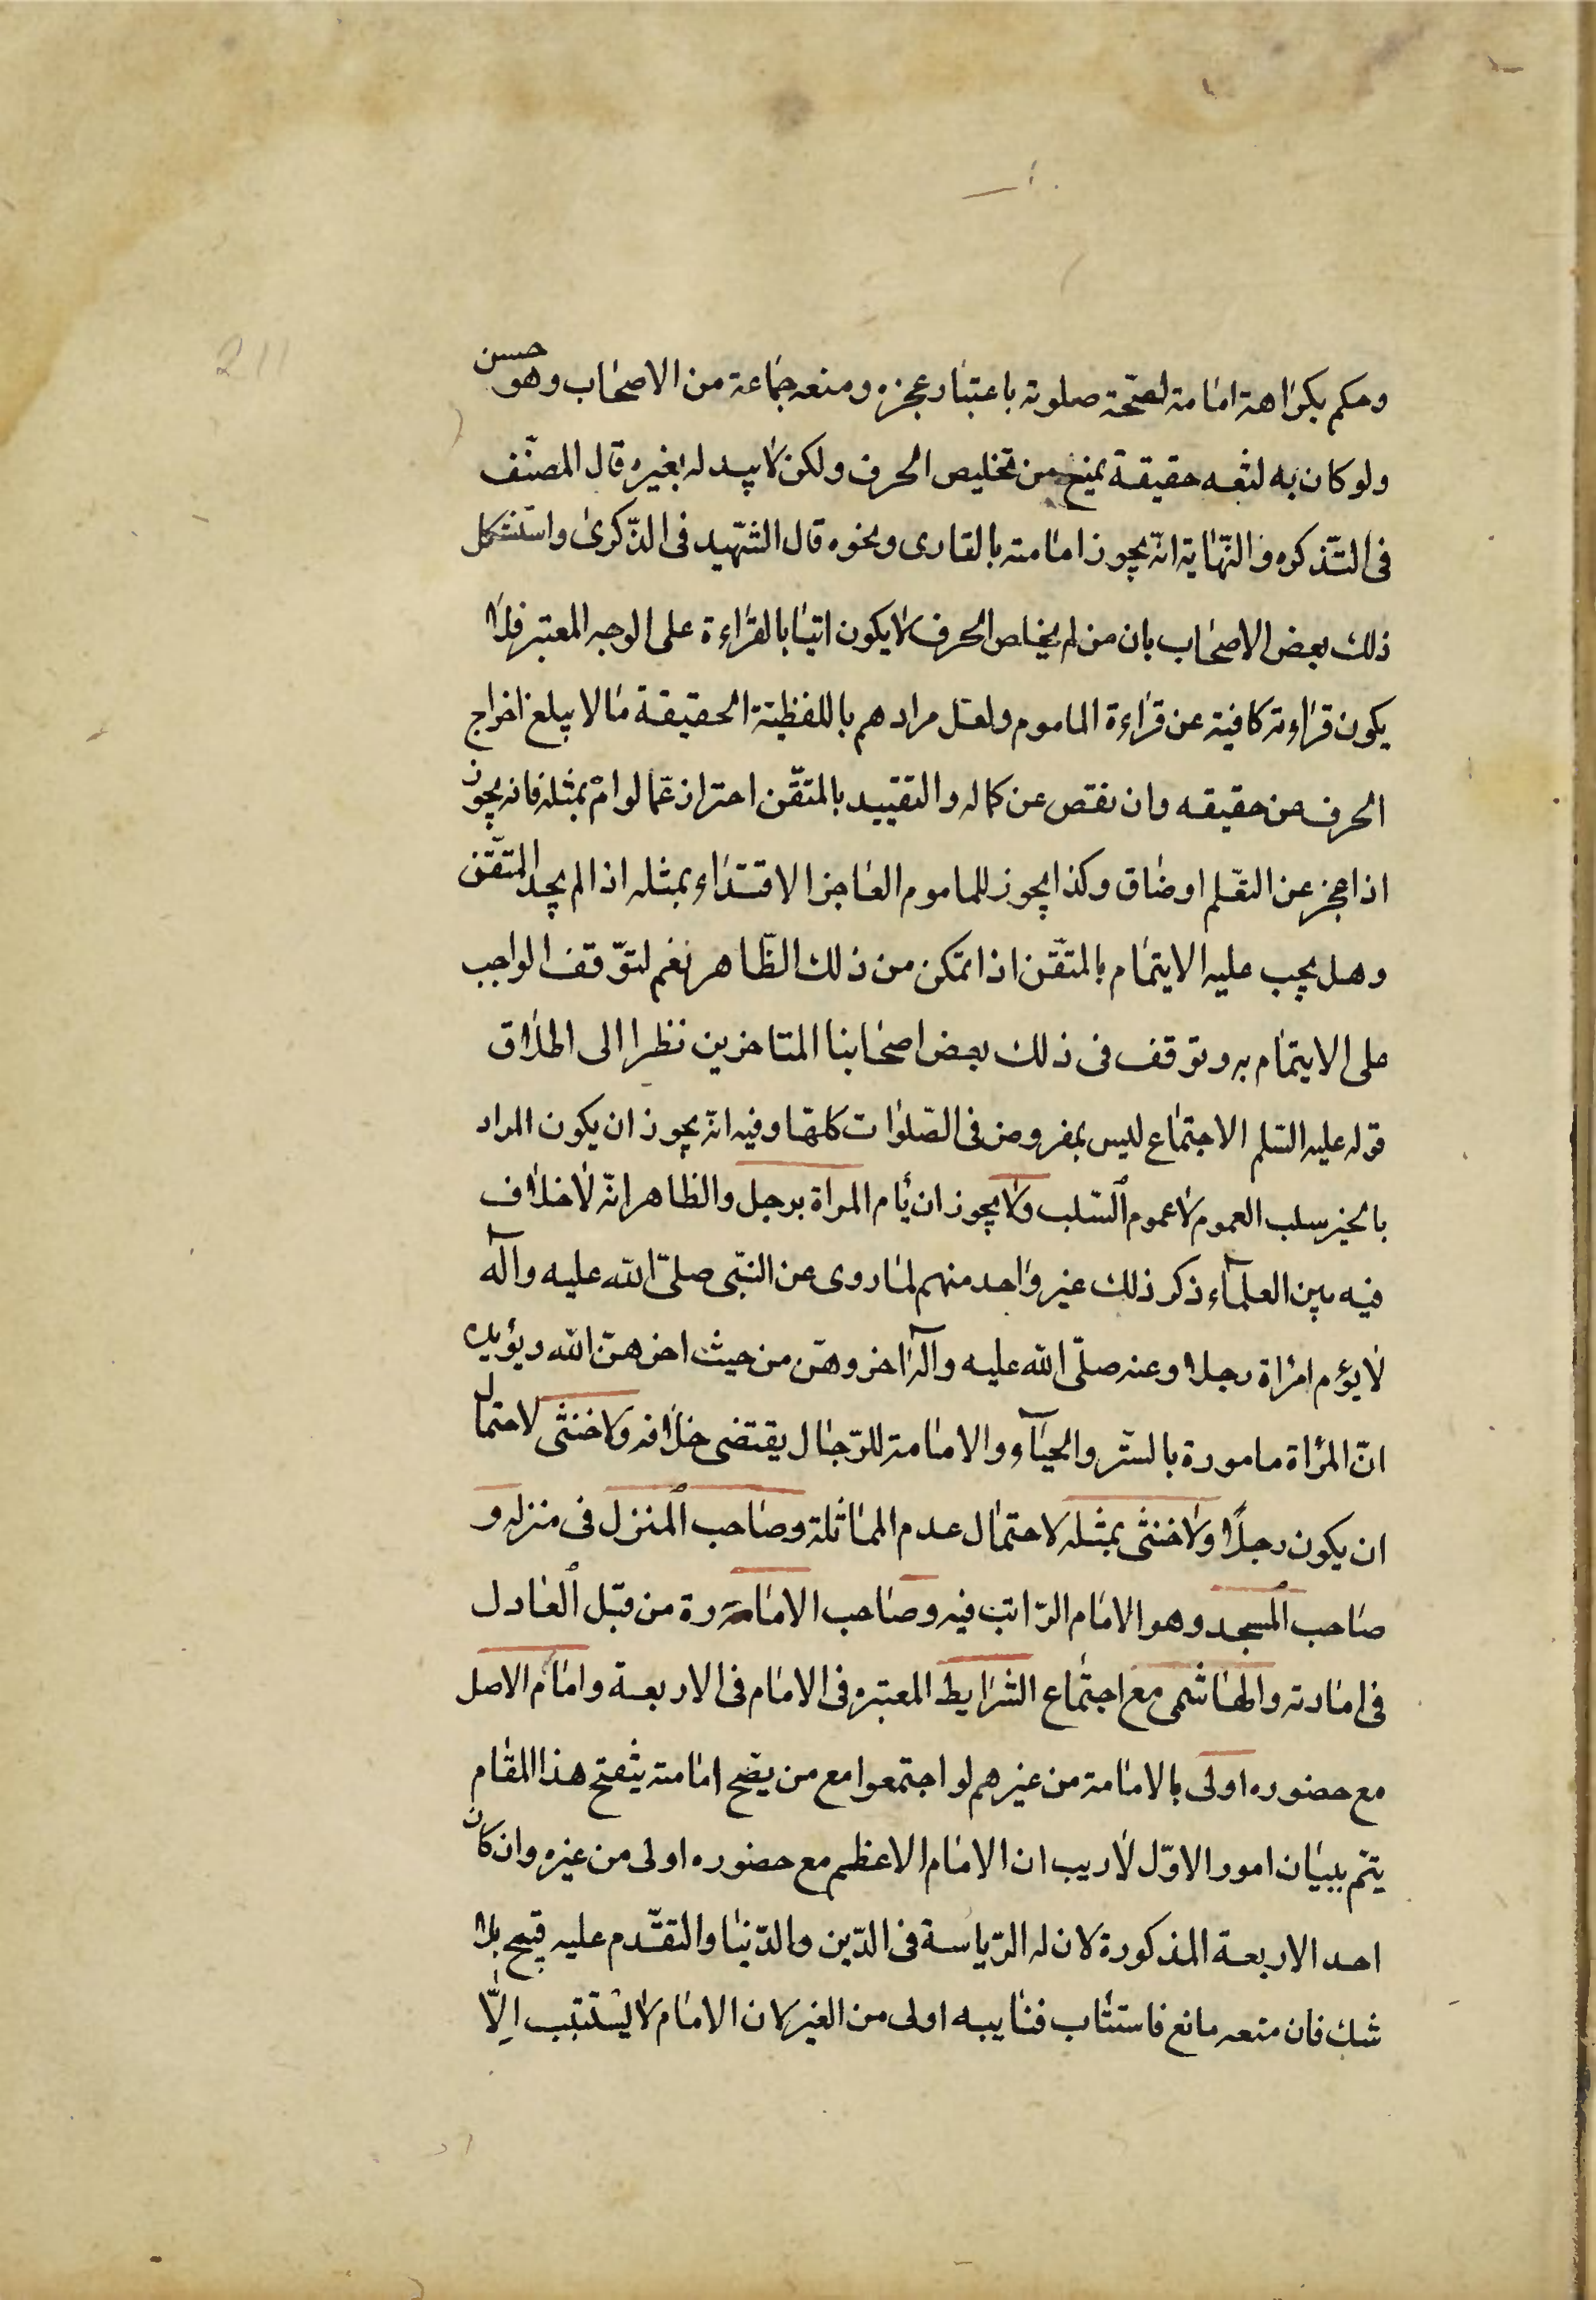 211
وحكم بكراهة امامة لصحّة صلوته باعتبار عجزه ومنعه جماعة من الاصحاب وهو حسن
ولو كان به لثغه حقيقة يمنع من تخليص الحرف ولكن لا يبدله بغيره قال المصنّف
فى التّذكره والنّهاية انّه يجوز امامته بالقارى ونحوه قال الشّهيد فى الذّكرى واستشكل
ذلك بعض الاصحاب بان من لم يخلص الحرف لا يكون اتيا بالقراءة على الوجه المعتبر فلا
يكون قراءته كافية عن قراءة الماموم ولعلّ مرادهم باللفظية الحقيقة ما لا يبلغ اخراج
الحرف عن حقيقه وان نقص عن كماله والتقييد بالمتقّن احتراز عمّا لو امّ بمثله فانه يجوز
اذا عجز عن التعّلم او ضاق وكذا يجوز للماموم العاجز الاقتداء بمثله اذا لم يجد المتقّن
وهل يجب عليه الايتمام بالمتقّن اذا تمكن من ذلك الظّاهر نعم لتوّقف الواجب
على الايتمام به وتوقف فى ذلك بعض اصحابنا المتاخرين نظرا الى اطلاق
قوله عليه السّلم الاجتماع ليس بمفروض فى الصّلوات كلها وفيه انّه يجوز ان يكون المراد
بالخبر سلب العموم لا عموم السّلب ولا يجوز ان تأم المراة برجل والظاهر انّه لا خلاف
فيه بين العلمآء ذكر ذلك غير واحد منهم لما روى عن النبّى صلىّ الله عليه وآله
لا يؤم امراة رجلا وعنه صلّى الله عليه وآله اخروهنّ من حيث اخرهنّ الله ويؤيده
انّ المرأة مامورة بالستّر والحيآء والامامة للرّجال يقتضى خلافه ولا خنثى لاحتمال
ان يكون رجلاً ولا خنثى بمثله لاحتمال عدم المماثلة وصاحب المنزل فى منزله و
صاحب المسجد وهو الامام الرّاتب فيه وصاحب الامارة من قبّل العادل
فى امارته والهاشمى مع اجتماع الشّرايط المعتبره فى الامام فى الاربعة وامام الاصل
مع حضوره اولى بالامامة من غيرهم لو اجتمعوا مع من يصّح امامته يثفتح هذا المقام
يتم ببيان امور الاوّل لا ريب ان الامام الاعظم مع حضوره اولى من غيره وان كان
احد الاربعة المذكورة لان له الرّياسة فى الدّين والدّنيا والتقدّم عليه قبيح بلا
شك فان منعه مانع فاستناب فنايبه اولى من الغير لان الامام لا يستنيب الّا